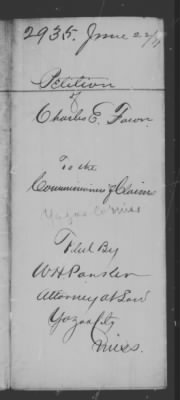 2935. June 22/71
Petition
of
Charles E. Fawn
To the
Commissioners of Claims
Yazoo Co Miss
Filed By
W H
Attorney at Law
Yazoo City
Miss.